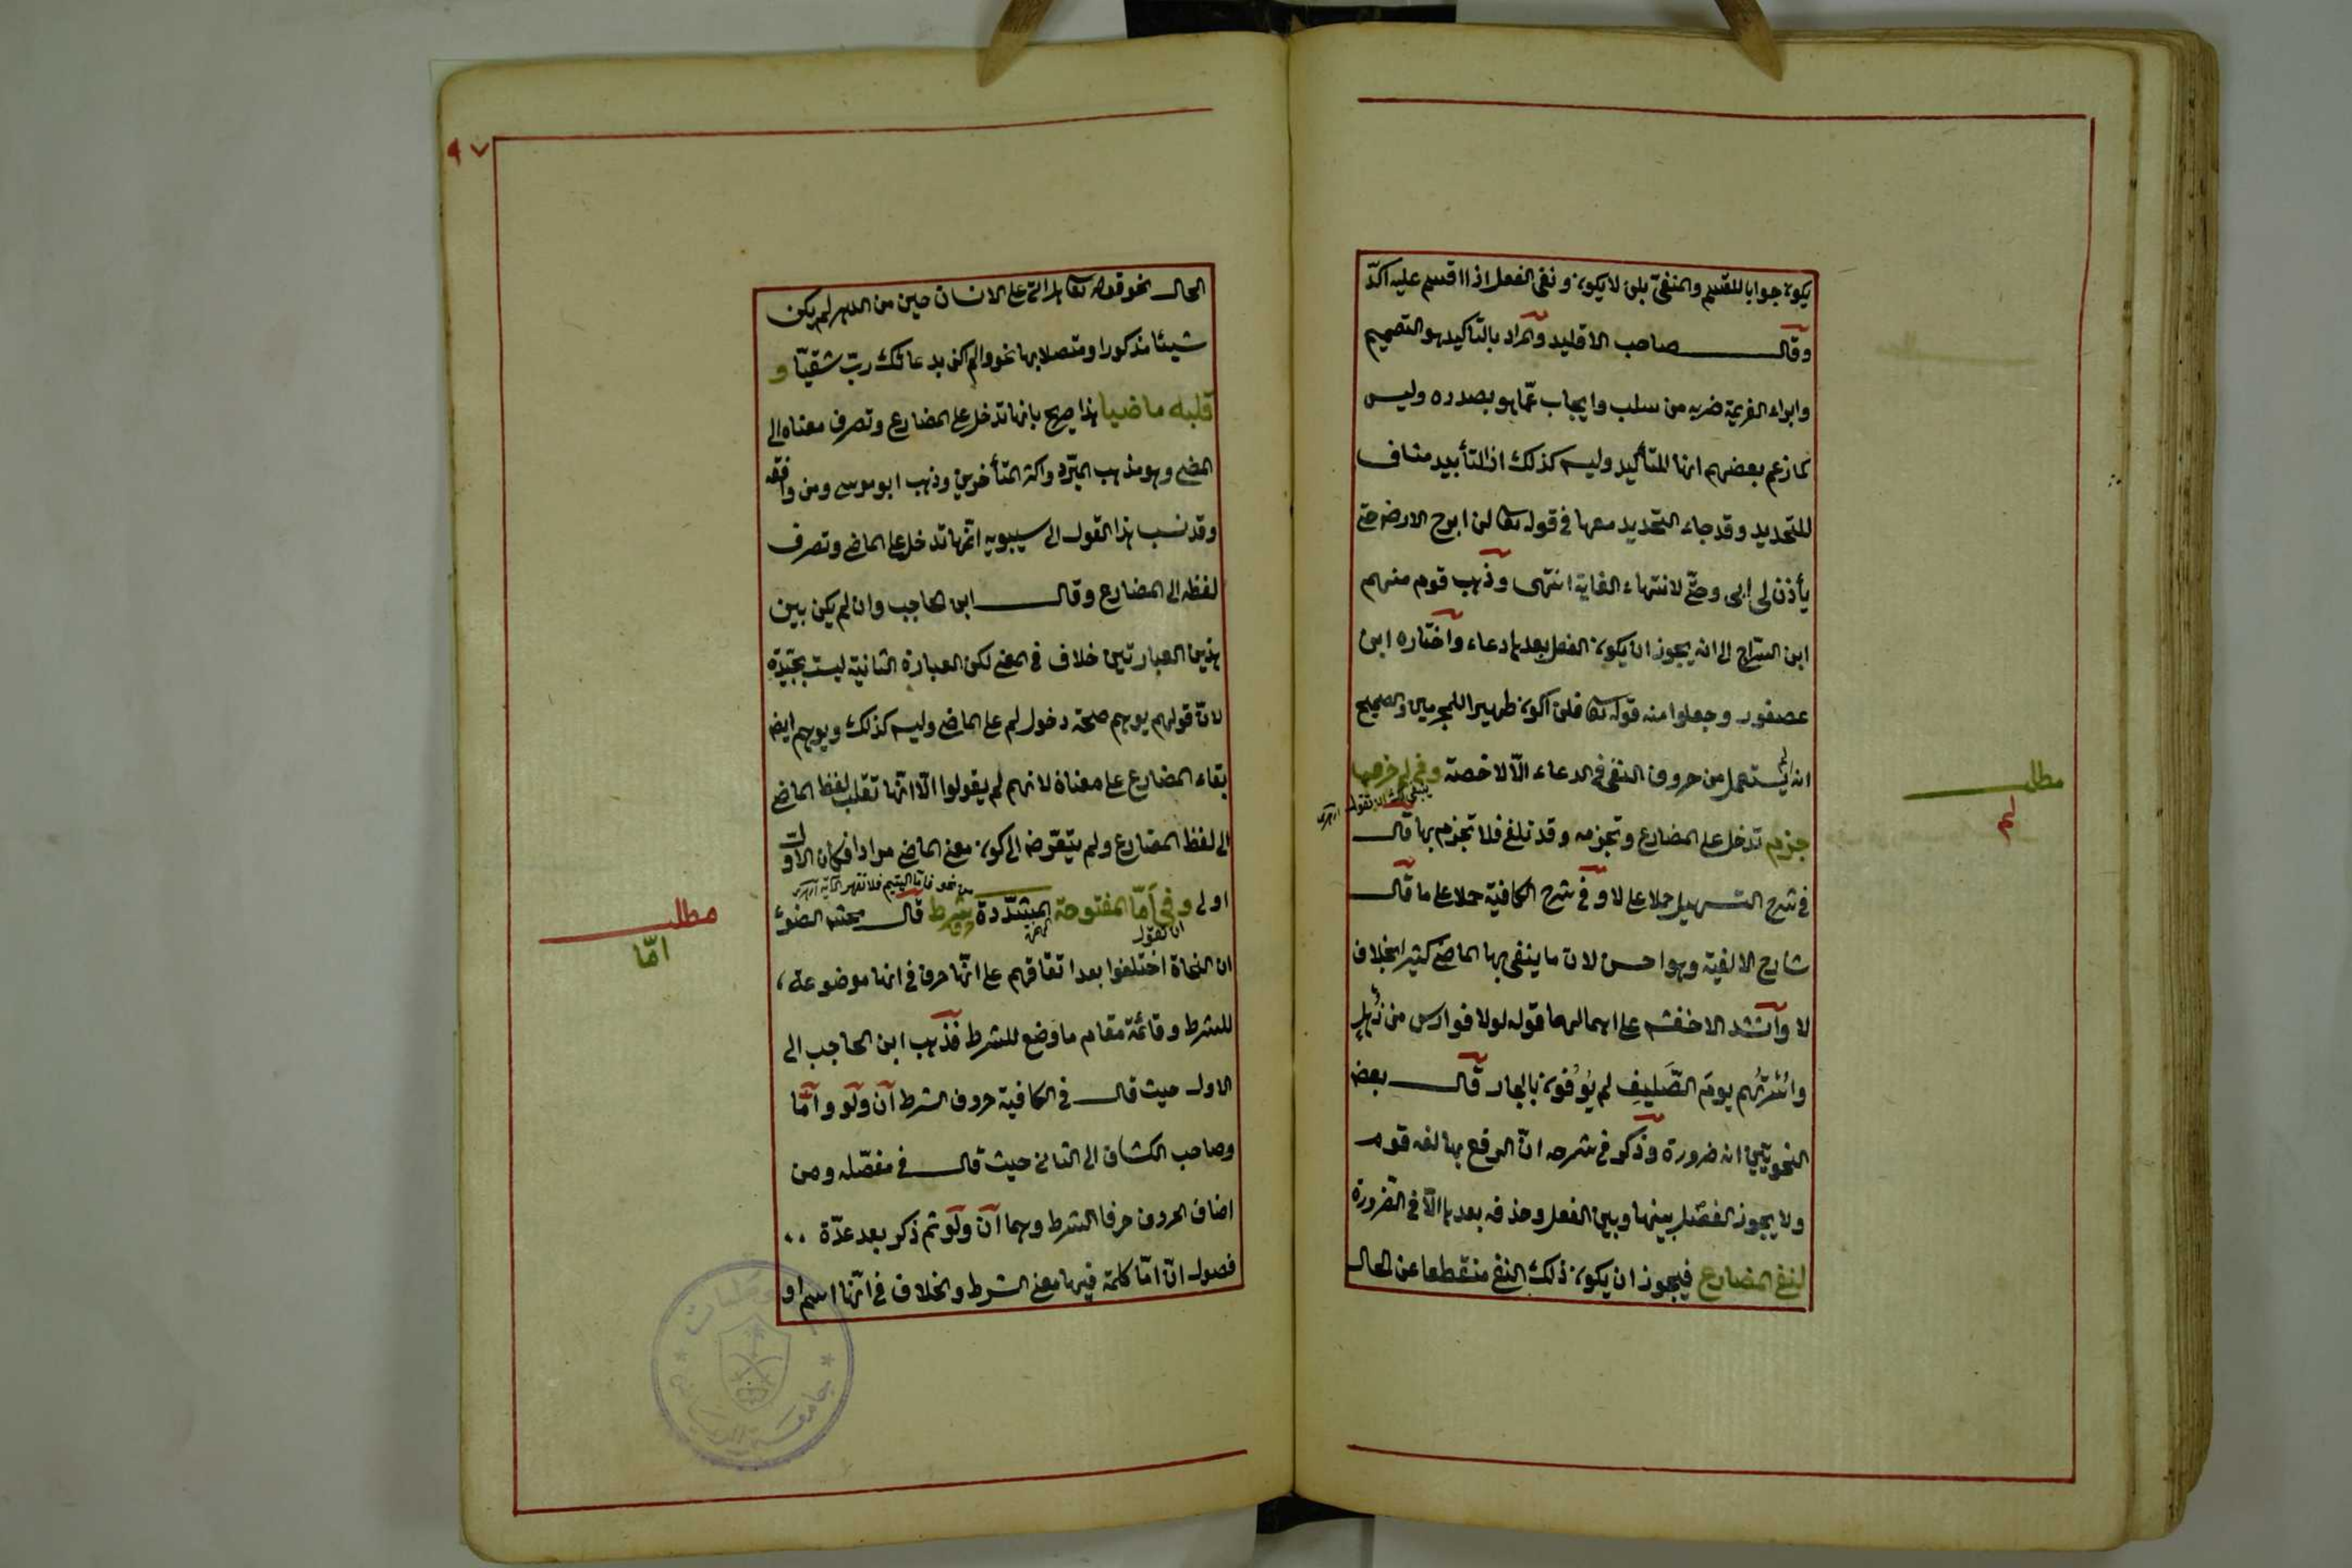 يكون جوابا للقسم والمنفي بلن لا يكون ونفي الفعل اذا اقسم عليه آكد
وقال صاحب الاقليد والمراد بالتأكيد هو التصميم
وابراء العزيمة ضربه من سلب وايجاب عما هو بصدده وليس
كما زعم بعضهم انها للتأكيد وليس كذلك اذ التأبيد مناف
للتحديد وقد جاء التحديد معها في قوله تعا لن ابرح الارض حتى
يأذن لى ابى وحتى لانتهاء الغاية انتهى وذهب قوم منهم
ابن السراج الى انه يجوز ان يكون الفعل بعدها دعاء واختاره ابن
عصفور وجعلوا منه قوله تعا فلن اكون ظهيرا للمجرمين والصحيح
انه لم يستعمل من حروف النفى فى الدعاء الا لا خصة وفى لم حرفها
ينبغى ان تقول
جزم تدخل على المضارع وتجزمه وقد تلغى فلا تجزم بها قال
فى شرح التسهيل حملا على لا وفى شرح الكافية حملا على ما قال
شارح الالفية وهو احسن لان ما ينفى بها الماضى كثيرا بخلاف
لا وانشد الاخفش على اهمالها قوله لولا فوارس من ذُهلٍ
واُسْرتُهم يومَ الصَّليفِ لم يُوفُون بالجار قال بعض
النحويين انه ضرورة وذكر فى شرحه انّ الرفع بها لغة قوم
ولا يجوز الفصل بينها وبين الفعل وحذفه بعدها الّا فى الضرورة
لنفى المضارع فيجوز ان يكون ذلك النفى منقطعا عن الحال
مطلب
لم
٩٧
الحال نحو قوله تعا هل اتى على الانسان حين من الدهر لم يكن
شيئا مذكورا ومتصلا بها نحو ولم اكن بدعائك ربّ شقيّا و
قلبه ماضيا هذا صريح بانها تدخل على المضارع وتصرف معناه الى
المضى وهو مذهب المبرّد واكثر المتأخرين وذهب ابو موسى ومن وافقه
وقد نسب هذا القول الى سيبويه انّها تدخل على الماضى وتصرف
لفظه الى المضارع وقال ابن الحاجب وان لم يكن بين
هذين العبارتين خلاف فى المعنى لكن العبارة الثانية ليست بجيّدة
لانّ قولهم يوهم صحة دخول لم على الماضى وليس كذلك ويوهم ايضا
بقاء المضارع على معناه لانهم لم يقولوا الّا انّها تقلب لفظ الماضى
الى لفظ المضارع ولم يتعرّض الى كون معنى الماضى مرادا فكان الاول
من نحو فاما اليتيم فلا تقهر الآية
اولى وفى اَمّا المفتوحة المشدّدة حرف شرط قال محشى الضوء
ان تقول
ان النحاة اختلفوا بعد اتفاقهم على انّها حرف فى انها موضوعة
للشرط وقائمة مقام ما وضع للشرط فذهب ابن الحاجب الى
الاول حيث قال فى الكافية حروف الشرط ان ولو وامّا
وصاحب الكشاف الى الثانى حيث قال فى مفصّله ومن
اصناف الحروف حرفا الشرط وهما ان ولو ثم ذكر بعد عدّة
فصول انّ امّا كلمة فيها معنى الشرط والخلاف فى انّها اسم او
مطلب
امّا
جامعة الرياض